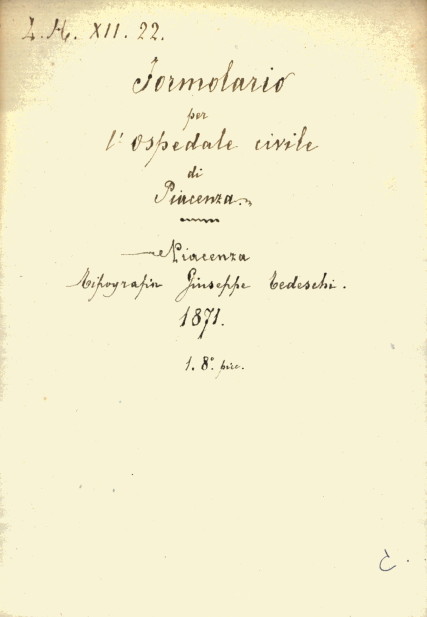 L. M. XII. 22.
Formolario
per
l'Ospedale civile
di
Piacenza.
Piacenza
Tipografia Giuseppe Tedeschi.
1871.
1. 8°. picc.